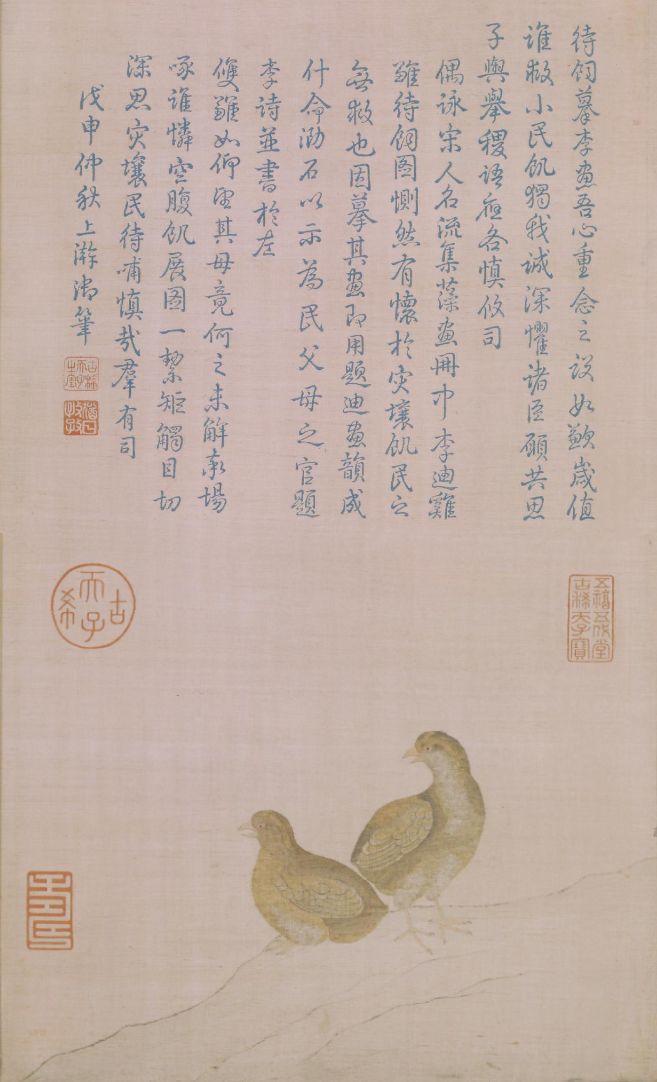 待飼摹李畫吾心重念之設如歉歲值
誰救小民飢獨我誠深懼諸臣願共思
子輿舉稷語庶各慎攸司
偶詠宋人名流集藻畫冊中李迪雞
雛待飼圖惻然有懷於灾壤飢民之
無救也因摹其畫即用題迪畫韻成
什命泐石以示為民父母之官題
李詩並書於左
雙雛如仰望其母竟何之未解索場
啄誰憐空腹飢展圖一絜矩觸目切
深思灾壤民待哺慎哉羣有司
戊申仲秋上澣御筆
古稀天子
五福五代堂
古稀天子寶